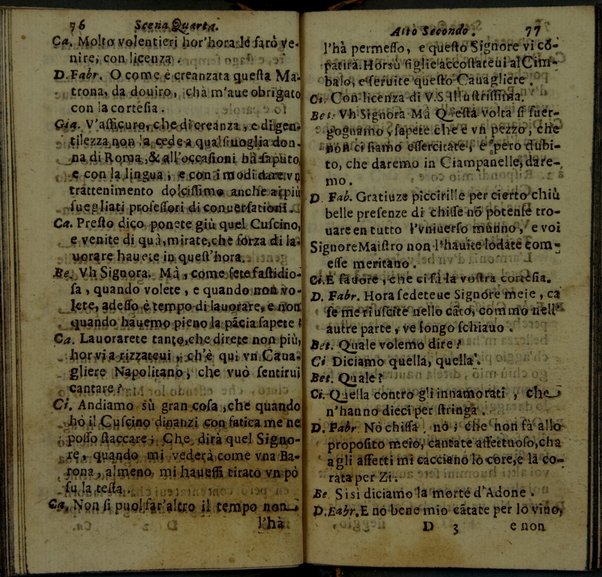 76 Scena Quarta.
Ca. Molto volentieri hor'hora le farò ve-
nire, con licenza.
D.Fabr. O come è creanzata questa Ma-
trona, da douiro, chà m'aue obrigato
con la cortesia.
Gia. V'assicuro, che di creanza, e di gen-
tilezza non la cede a qualsiuoglia don-
na di Roma, & all'occasioni hà saputo
e con la lingua, e con i modi dare vn
trattenimento dolcissimo anche a i più
suegliati professori di conuersationi.
Ca. Presto dico, ponete giù quel Cuscino,
e venite di quà, mirate, che forza di la-
uorare hauete in quest'hora.
Be. Vh Signora. Mà, come sete fastidio-
sa, quando volete, e quando non vo-
lete, adesso è tempo di lauorare, e non
quando hauemo pieno la pācia sapete?
Ca. Lauorarete tanto, che direte non più,
hor via rizzateui, ch'è quì vn Caua-
gliere Napolitano, che vuò sentirui
cantare?
Ci. Andiamo sù gran cosa, che quando
hò il Cuscino dinanzi con fatica me ne
posso staccare; Che dirà quel Signo-
re, quando mi vederà come vna Ba-
rona, almeno mi hauessi tirato vn pò
sù la testa.
Ca. Non si puol far'altro il tempo non
l'hà
Atto Secondo. 77
l'hà permesso, e questo Signore vi cō-
patirà. Horsù figlie accostateui al Cim-
balo, e seruite questo Cauagliere.
Ci. Con licenza di V.S. Illustrissima.
Bet. Vh Signora Mà Questa volta si suer-
gognamo, sapete che è vn pezzo, che
non ci siamo essercitate, e però dubi-
to, che daremo in Ciampanelle, dare-
mo.
D. Fab. Gratiuze piccirille per cierto chiù
belle presenze di chisse nō potense tro-
uare en tutto l'vniuerso munno, e voi
Signore Maistro non l'hauite lodate com-
esse meritano.
Ci. E fauore, che ci fà la vostra cortesia.
D. Fabr. Hora sedeteue Signore meie, ca
se me riuscite nello cāto, commo nell'
autre parte, ve songo schiauo.
Bet. Quale volemo dire?
Ci Diciamo quella, quella.
Bet. Quale?
Ci. Quella contro gli innamorati, che
n'hanno dieci per stringa.
D. Fabr Nò chissa, nò; che non fà allo
proposito meio, cantate affettuoso, cha
agli affetti mi cacciano lo core, e la co-
rata per Zi.
Be Si si diciamo la morte d'Adone.
D. Fabr. E nò bene mio cātate per lo viuo,
D 3 e non